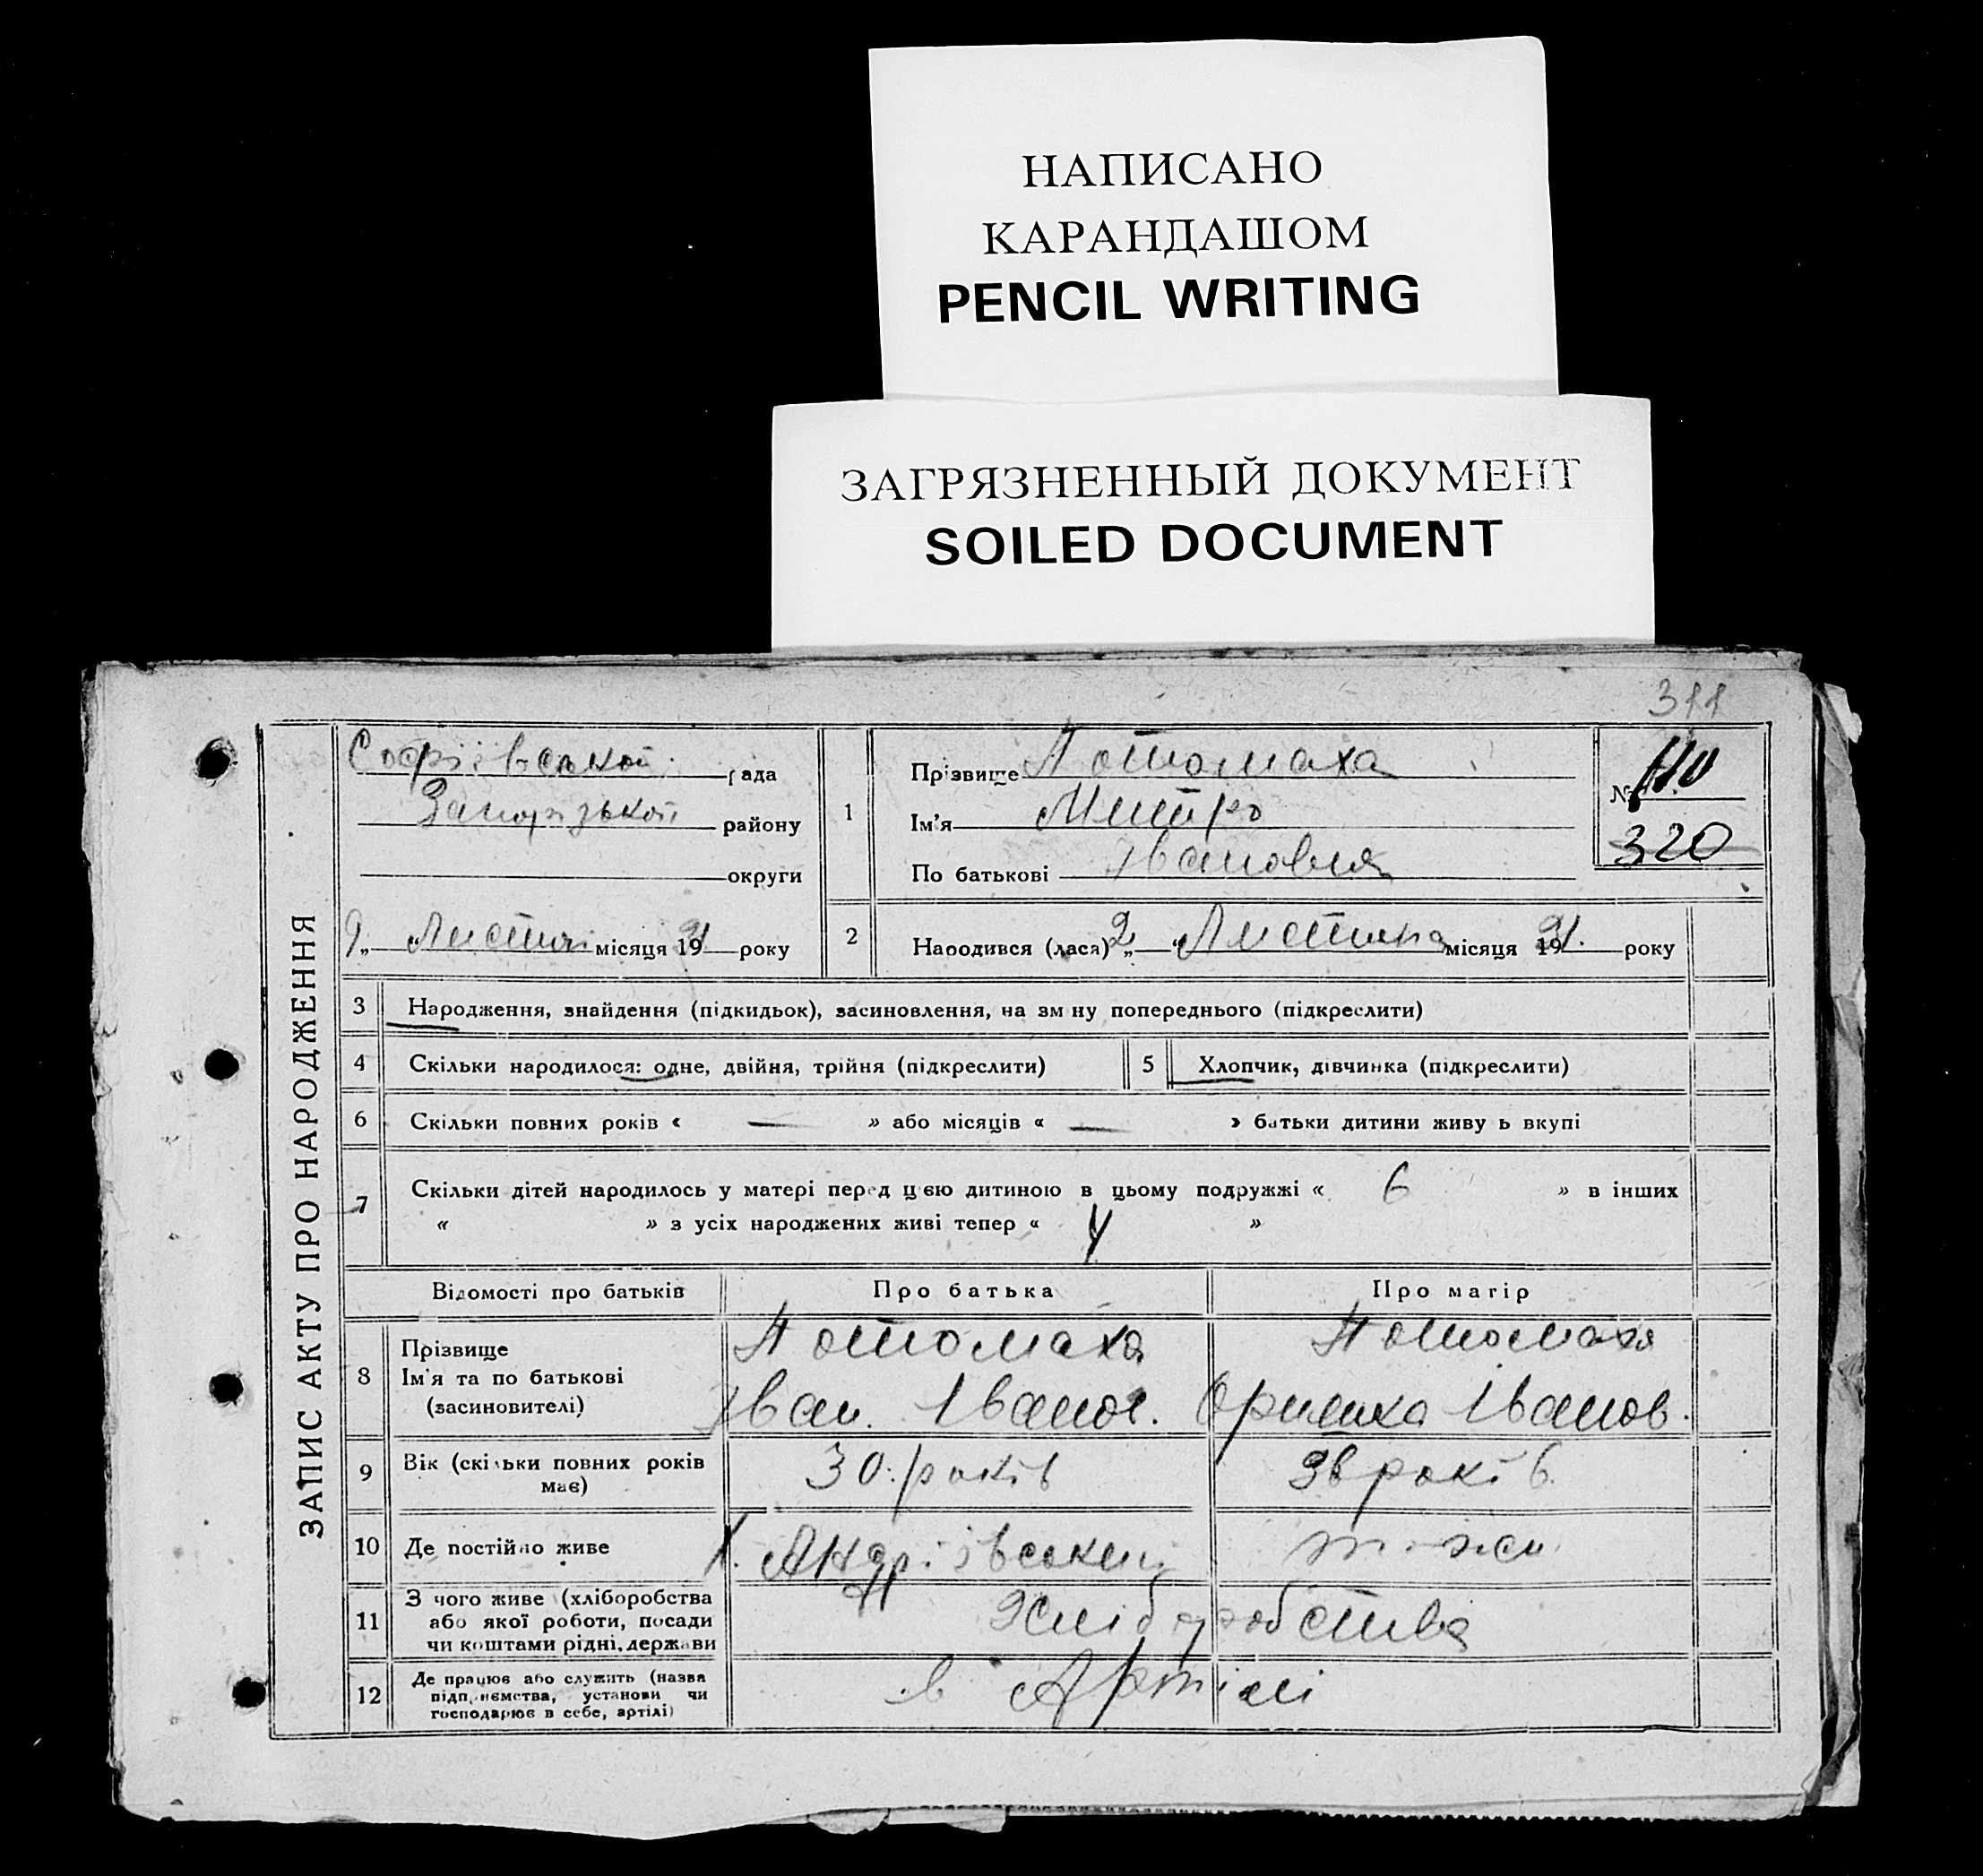 НАПИСАНО
КАРАНДАШОМ
PENCIL WRITING
ЗАГРЯЗНЕННЫЙ ДОКУМЕНТ
SOILED DOCUMENT
311
ЗАПИС АКТУ ПРО НАРОДЖЕННЯ
Софіївської рада
Запорізької району
округи
9 „ Листоп місяця 1931 року
1
Прізвище Потомаха
Ім'я Митро
По батькові Івановия
№ 110
320
2 Народився (лася) 2 „ Листопа місяця 1931. року
3 Народження, знайдення (підкидьок), засиновлення, на зм ну попереднього (підкреслити)
4 Скільки народилося: одне, двійня, трійня (підкреслити) 5 Хлопчик, дівчинка (підкреслити)
6 Скільки повних років « — » або місяців « — » батьки дитини живу ь вкупі
7 Скільки дітей народилось у матері перед цією дитиною в цьому подружжі « 6 » в інших
« » з усіх народжених живі тепер « 4 »
Відомості про батьків Про батька Про матір
8 Прізвище Потомаха Потомаха
Ім'я та по батькові Іван. Іванов. Оришка Іванов.
(засиновителі)
9 Вік (скільки повних років має) 30. років 36 років
10 Де постійно живе х. Андріївський т-же
11 З чого живе (хліборобства Хліборобства
або якої роботи, посади
чи коштами рідні, держави
12 Де працює або служить (назва в Артілі
підприємства, установи чи
господарює в себе, артілі)